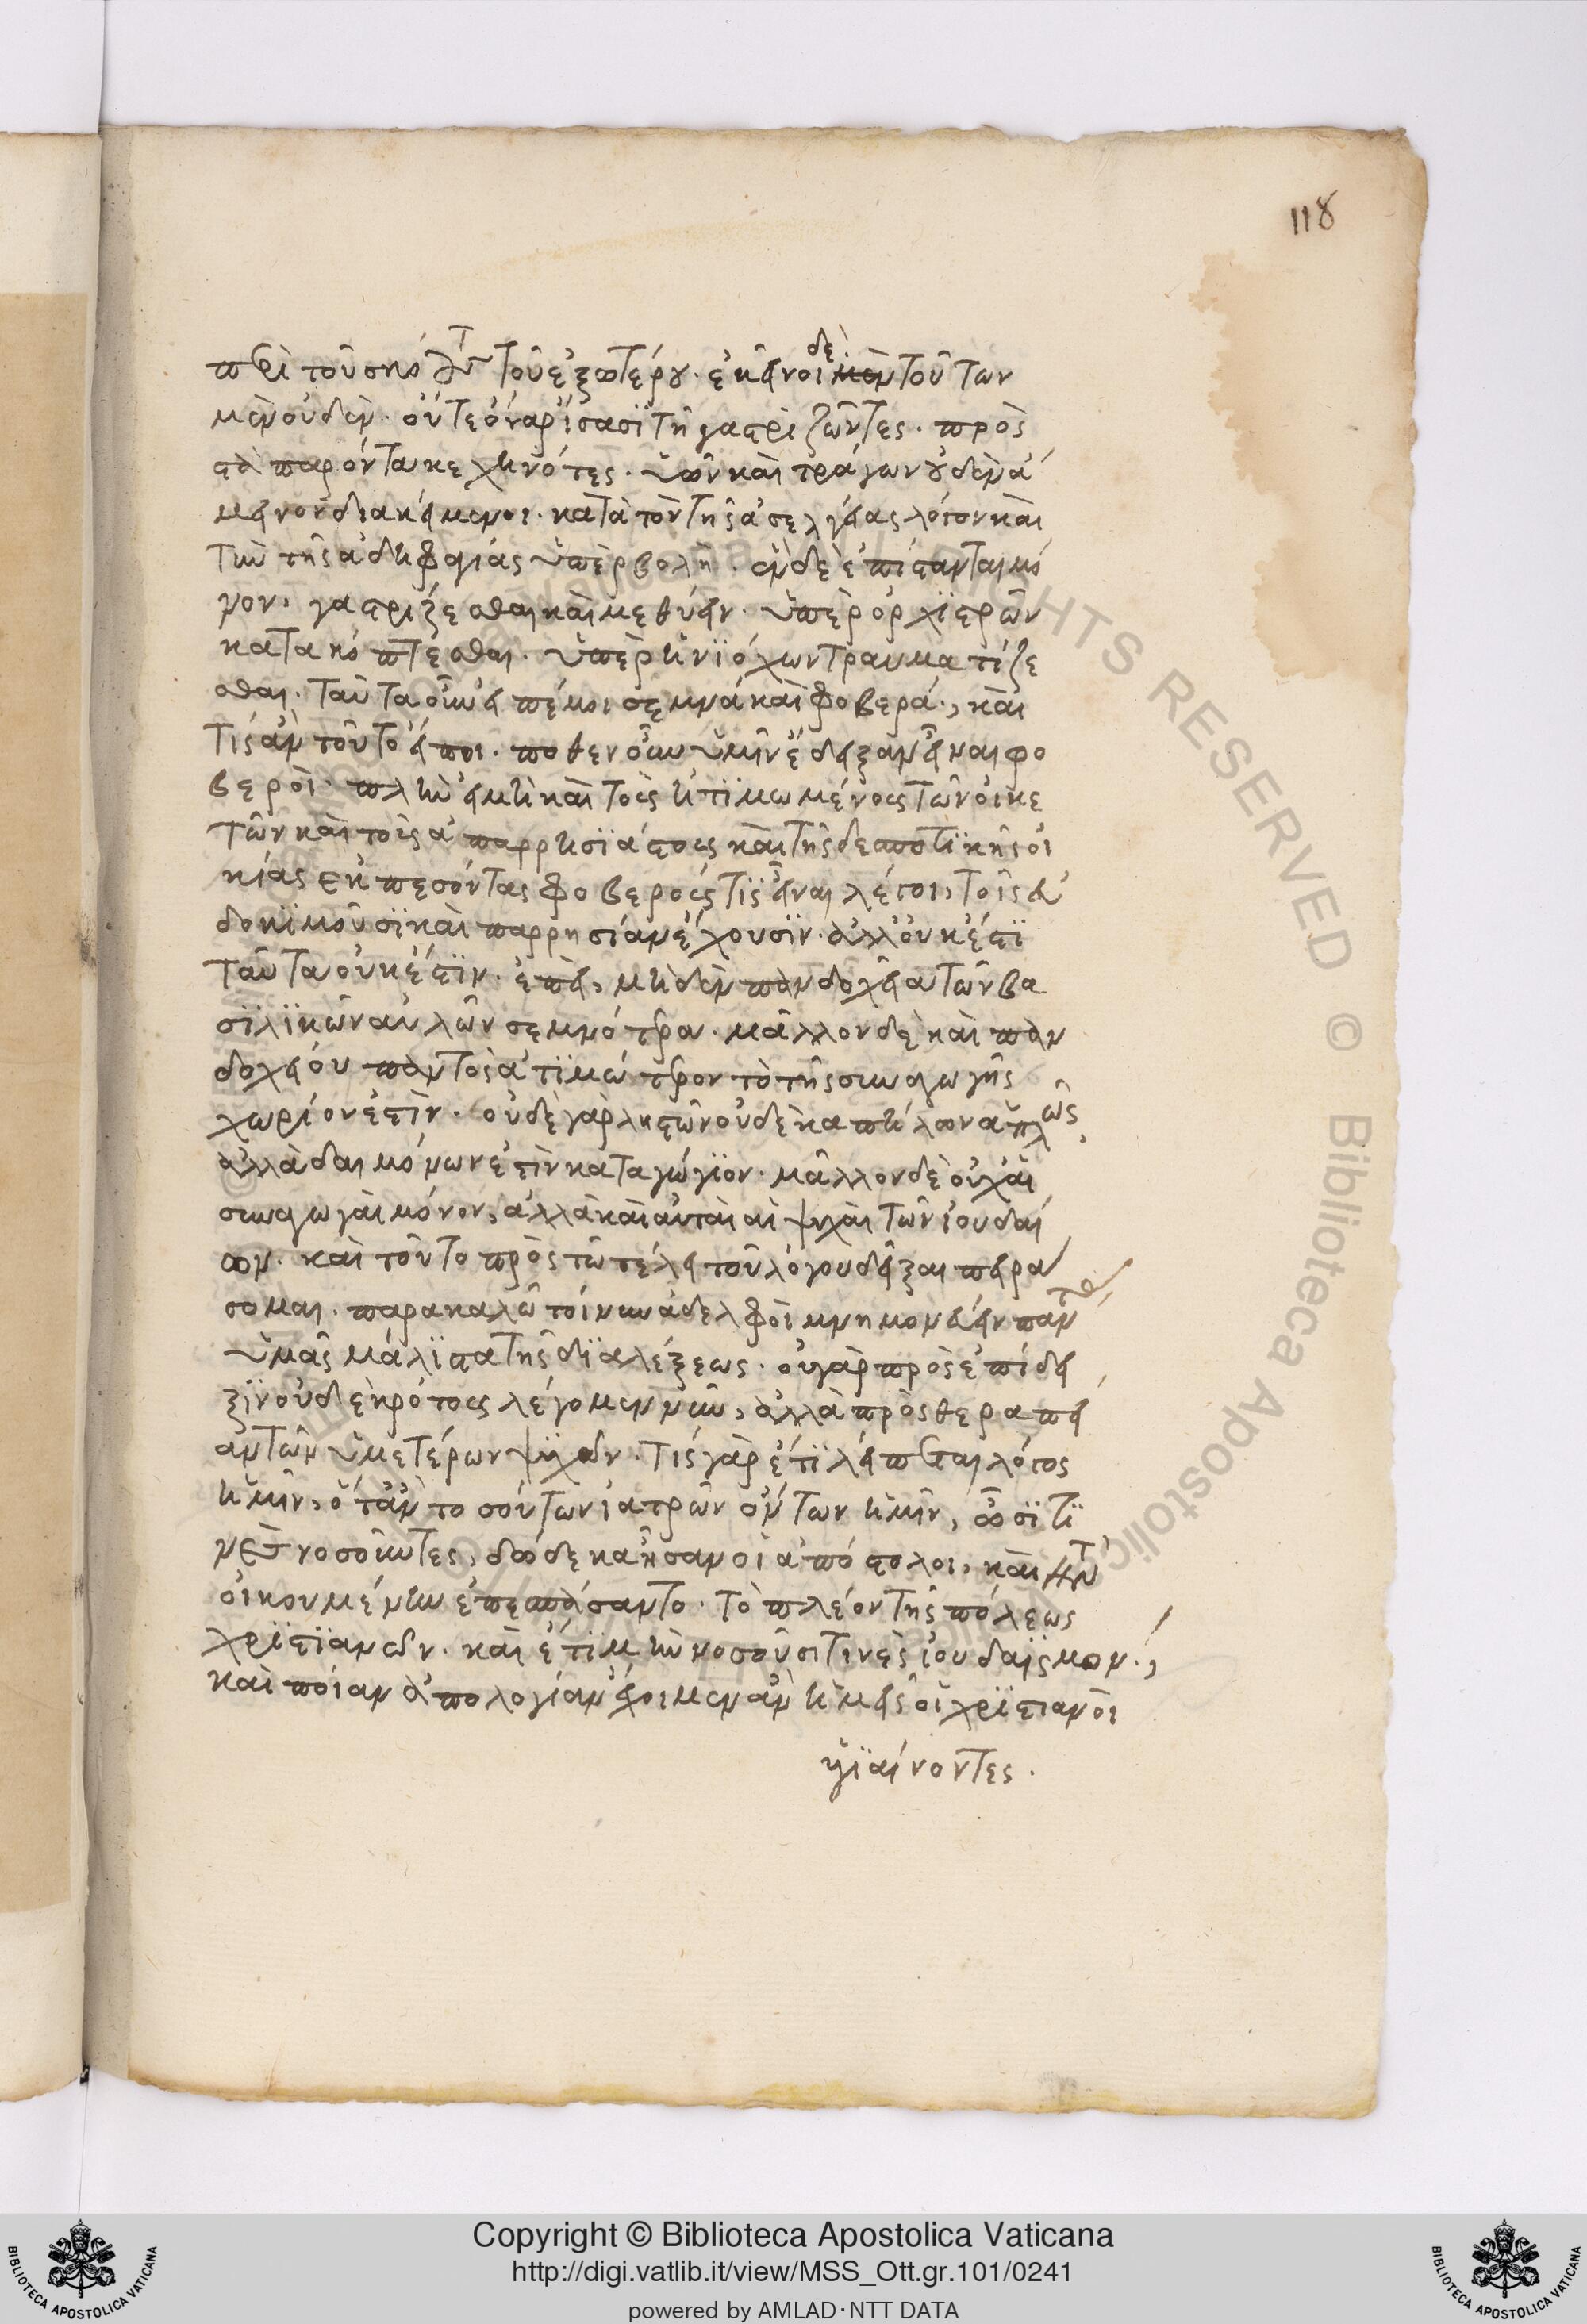 118
περὶ τοῦ σκότους τοῦ ἐξωτέρου. ἐκεῖνοι δὲ τούτων
μὲν οὐδὲν. οὔτε ὄναρ ἴσασϊ τῇ γαστρὶ ζῶντες. πρὸς
τὰ παρόντα κεχηνότες. ὑῶν καὶ τράγων οὐδὲν ἄ
μεινον διακείμενοι. κατὰ τὸν τῆς ἀσελγείας λόγον καὶ
τὴν τῆς ἀδηφαγίας ὑπερβολὴν. ἓν δὲ ἐπίστανται μό
νον, γαστρίζεσθαι καὶ μεθύειν. ὑπὲρ ὀρχϊστρῶν
κατακόπτεσθαι. ὑπὲρ ἡνϊόχων τραυματίζε
σθαι. ταῦτα οὖν εἰπέ μοι σεμνὰ καὶ φοβερά·, καὶ
τίς ἂν τοῦτο εἴποι. πόθεν οὖν ὑμῖν ἔδειξαν εἶναι φο
βεροὶ. πλὴν εἰ μὴ καὶ τοὺς ἠτϊμωμένους τῶν οἰκε
τῶν καὶ τοὺς ἀπαρρησϊάστους καὶ τῆς δεσποτϊκῆς οἰ
κίας ἐκπεσόντας φοβεροὺς τϊς εἶναι λέγοι, τοῖς εὐ
δοκϊμοῦσϊ καὶ παρρησίαν ἔχουσϊν. ἀλλ' οὐκ ἔστϊ
ταῦτα οὐκ ἔστϊν. ἐπεὶ, μηδὲν πανδοχεῖα τῶν βα
σϊλϊκῶν αὐλῶν σεμνότερα. μᾶλλον δὲ καὶ παν
δοχείου παντὸς ἀτϊμώτερον τὸ τῆς συναγωγῆς
χωρίον ἐστὶν. οὐδὲ γὰρ λῃστῶν οὐδὲ καπήλων ἁπλῶς,
ἀλλὰ δαιμόνων ἐστὶν καταγώγϊον. μᾶλλον δὲ οὐχ αἱ
συναγωγαὶ μόνον, ἀλλὰ καὶ αὐταὶ αἱ ψυχαὶ τῶν ἰουδαί
ων. καὶ τοῦτο πρὸς τῶ τέλει τοῦ λόγου δεῖξαι πειρά
σομαι. παρακαλῶ τοίνυν ἀδελφοὶ μνημονεύειν πάντας
ὑμᾶς μάλϊστα τῆς δϊαλέξεως. οὐ γὰρ πρὸς ἐπίδει
ξϊν οὐδὲ κρότους λέγομεν νῦν, ἀλλὰ πρὸς θεραπεί
αν τῶν ὑμετέρων ψυχῶν. τίς γὰρ ἔτϊ λείπεται λόγος
ἡμῖν, ὅταν τοσούτων ἰατρῶν ὄντων ἡμῖν, ὦσϊ τϊ
νὲς νοσοῦντες, δώδεκα ἦσαν οἱ ἀπόστολοι, καὶ τὴν
οἰκουμένην ἐπεσπάσαντο. τὸ πλέον τῆς πόλεως
χρϊστϊανῶν. καὶ ἔτϊ μὴν νοσοῦσι τινὲς ἰουδαϊσμὸν·,
καὶ ποίαν ἀπολογίαν ἔχοιμεν ἂν ἡμεῖς οἱ χρϊστιανοὶ
ὑγϊαίνοντες.
Copyright © Biblioteca Apostolica Vaticana
http://digi.vatlib.it/view/MSS_Ott.gr.101/0241
powered by AMLAD·NTT DATA
BIBLIOTECA APOSTOLICA VATICANA
BIBLIOTECA APOSTOLICA VATICANA